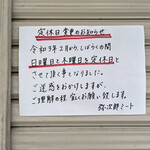 定休日変更のお知らせ
令和3年2月から、しばらくの間
日曜日と木曜日を定休日と
させて頂く事となりました。
ご迷惑をおかけしますが、
ご理解の程 宜しくお願い致します。
弥次郎ミート